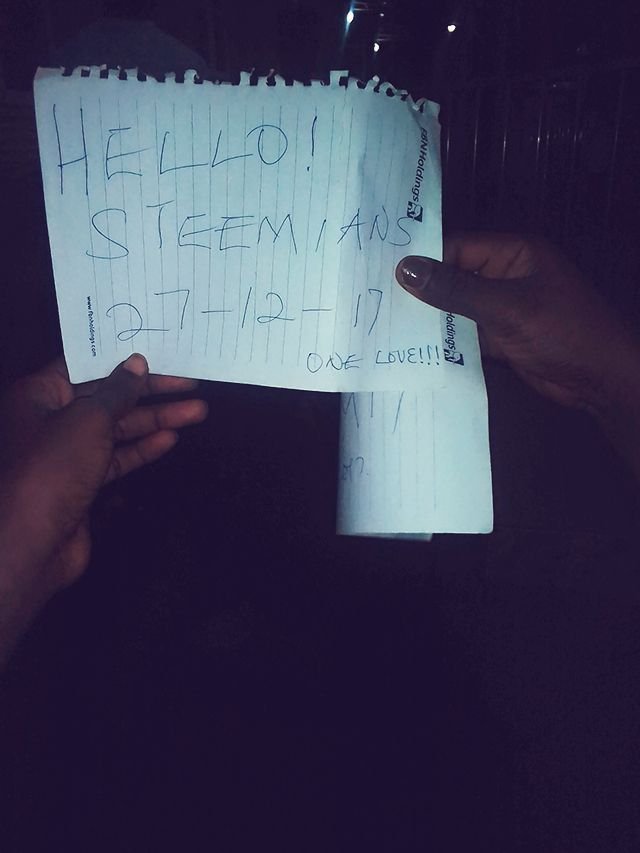 HELLO!
STEEMIANS
27-12-17
ONE LOVE!!!
FBNHoldings
Holdings
www.fbnholdings.com